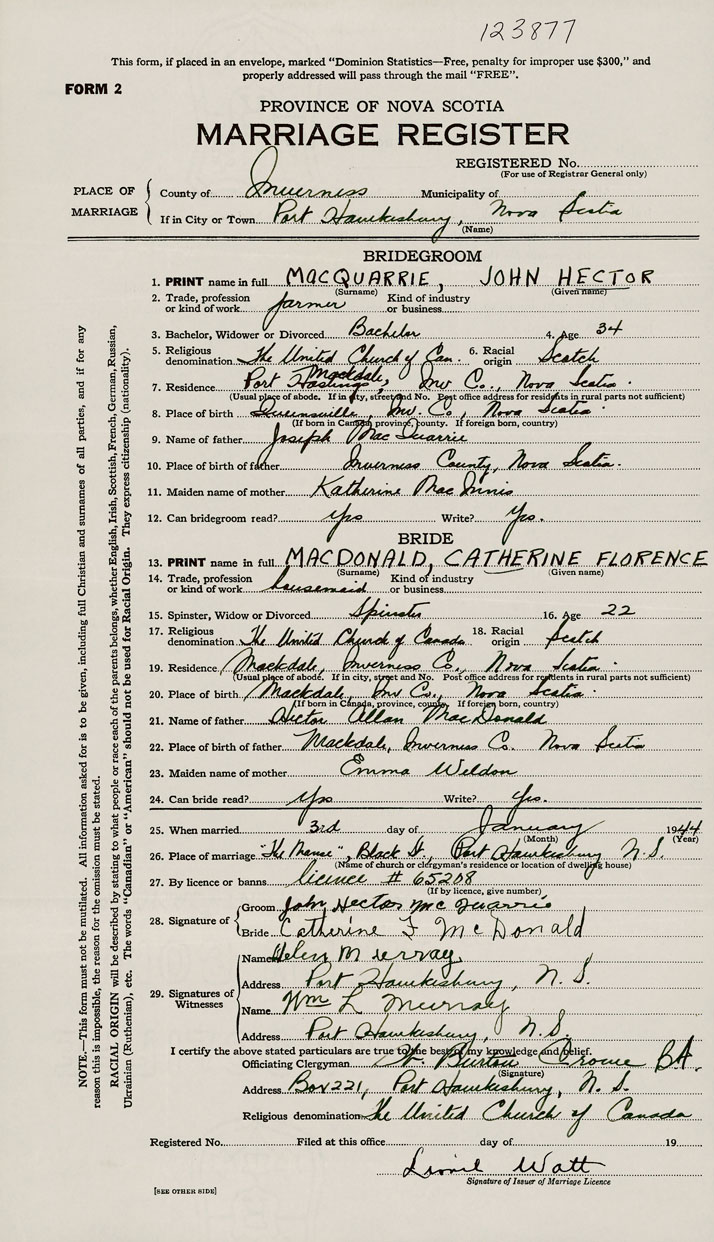 123877
This form, if placed in an envelope, marked "Dominion Statistics—Free, penalty for improper use $300," and
properly addressed will pass through the mail "FREE".
FORM 2
PROVINCE OF NOVA SCOTIA
MARRIAGE REGISTER
REGISTERED No.
(For use of Registrar General only)
PLACE OF MARRIAGE
County of Inverness Municipality of
If in City or Town Port Hawkesbury, Nova Scotia
(Name)
BRIDEGROOM
1. PRINT name in full MACQUARRIE, JOHN HECTOR
(Surname) (Given name)
2. Trade, profession or kind of work farmer Kind of industry or business
3. Bachelor, Widower or Divorced Bachelor 4. Age 34
5. Religious denomination The United Church of Can. 6. Racial origin Scotch
Mackdale,
7. Residence Port Hastings, Inv Co., Nova Scotia.
(Usual place of abode. If in city, street and No. Post office address for residents in rural parts not sufficient)
8. Place of birth Queensville, Inv. Co, Nova Scotia.
(If born in Canada province, county. If foreign born, country)
9. Name of father Joseph MacQuarrie
10. Place of birth of father Inverness County, Nova Scotia.
11. Maiden name of mother Katherine MacInnis
12. Can bridegroom read? Yes Write? Yes.
BRIDE
13. PRINT name in full MACDONALD, CATHERINE FLORENCE
(Surname) (Given name)
14. Trade, profession or kind of work housemaid Kind of industry or business
15. Spinster, Widow or Divorced Spinster 16. Age 22
17. Religious denomination The United Church of Canada 18. Racial origin Scotch
19. Residence Mackdale, Inverness Co., Nova Scotia.
(Usual place of abode. If in city, street and No. Post office address for residents in rural parts not sufficient)
20. Place of birth Mackdale, Inv Co., Nova Scotia.
(If born in Canada, province, county. If foreign born, country)
21. Name of father Hector Allan MacDonald
22. Place of birth of father Mackdale, Inverness Co. Nova Scotia
23. Maiden name of mother Emma Weldon
24. Can bride read? Yes Write? Yes.
25. When married 3rd day of January 1944
(Month) (Year)
26. Place of marriage "The Manse", Black St., Port Hawkesbury N.S.
(Name of church or clergyman's residence or location of dwelling house)
27. By licence or banns licence # 65208
(If by licence, give number)
28. Signature of
Groom John Hector McQuarrie
Bride Catherine F McDonald
29. Signatures of Witnesses
Name Helen Murray
Address Port Hawkesbury, N.S.
Name Wm L Murray
Address Port Hawkesbury, N.S.
I certify the above stated particulars are true to the best of my knowledge and belief.
Officiating Clergyman W. Burton Crowe BA.
(Signature)
Address Box 221, Port Hawkesbury, N.S.
Religious denomination The United Church of Canada
Registered No. Filed at this office day of 19
Lionel Watt
Signature of Issuer of Marriage Licence
[SEE OTHER SIDE]
NOTE.—This form must not be mutilated. All information asked for is to be given, including full Christian and surnames of all parties, and if for any
reason this is impossible, the reason for the omission must be stated.
RACIAL ORIGIN will be described by stating to what people or race each of the parents belongs, whether English, Irish, Scottish, French, German, Russian,
Ukrainian (Ruthenian), etc. The words "Canadian" or "American" should not be used for Racial Origin. They express citizenship (nationality).